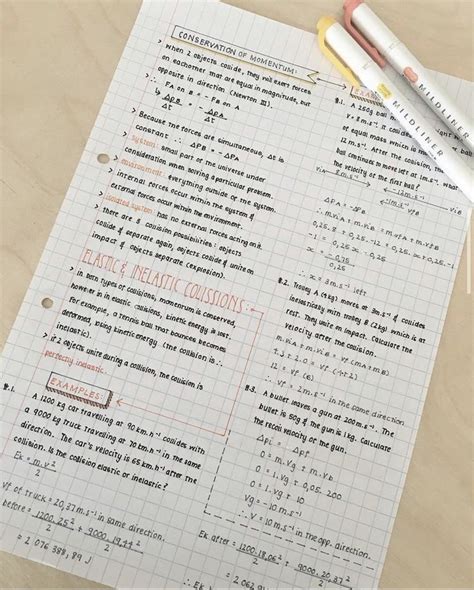 CONSERVATION OF MOMENTUM:
> When 2 objects collide, they will exert forces
on eachother that are equal in magnitude, but
opposite in direction (Newton III).
∴ FA on B = -FB on A
↳ ΔpB = -ΔpA
Δt Δt
> Because the forces are simultaneous, Δt is
constant ∴ ΔpB = -ΔpA
> System: small part of the universe under
consideration when solving a particular problem.
> environment: everything outside of the system.
> internal forces occur within the system &
external forces occur within the environment.
> isolated system has no external forces acting on it.
> there are 3 collision possibilities: objects
collide & separate again, objects collide & unite on
impact & objects separate (explosion).
ELASTIC & INELASTIC COLISSIONS:
> in both types of collisions, momentum is conserved,
however in elastic collisions, kinetic energy is lost.
For example, a tennis ball that bounces becomes
deformed, using kinetic energy (the collision is ∴
inelastic).
> if 2 objects unite during a collision, the collision is
perfectly inelastic.
EXAMPLES:
A 1200 kg car travelling at 90 km.h⁻¹ collides with
a 9000 kg truck travelling at 70 km.h⁻¹ in the same
direction. The car's velocity is 65 km.h⁻¹ after the
collision. Is the collision elastic or inelastic?
Ek = m.v²
2
Vf of truck = 20,37 m.s⁻¹ in same direction.
before = 1200.25² + 9000.19,44²
2 2
= 2 076 388,89 J
A 250g
ball
of equal mass which is
12 m.s⁻¹. After the collision, the
ball continues to move left at 1m.s⁻¹. What
the velocity of the first ball?
ΔpA = -ΔpB
x = 3m.s⁻¹ left
8.2. Trolley A (4kg) moves at 3m.s⁻¹ & collides
inelastically with trolley B (2kg) which is at
rest. They unite on impact. Calculate the
velocity after the collision.
12 = vf (6)
∴ Vf = 2m.s⁻¹ in the same direction
8.3. A bullet leaves a gun at 200m.s⁻¹. The
bullet is 50g & the gun is 1kg. Calculate
the recoil velocity of the gun.
Δpi = Δpf
0 = m.vg + m.vb
0 = 1.vg + 0,05.200
0 = 1.vg + 10
Vg = -10 m.s⁻¹
∴ V = 10 m.s⁻¹ in the opp. direction.
Ek after = 1200.18,06² + 9000.20,37²
2 2
MILDLINER
MILDLINER